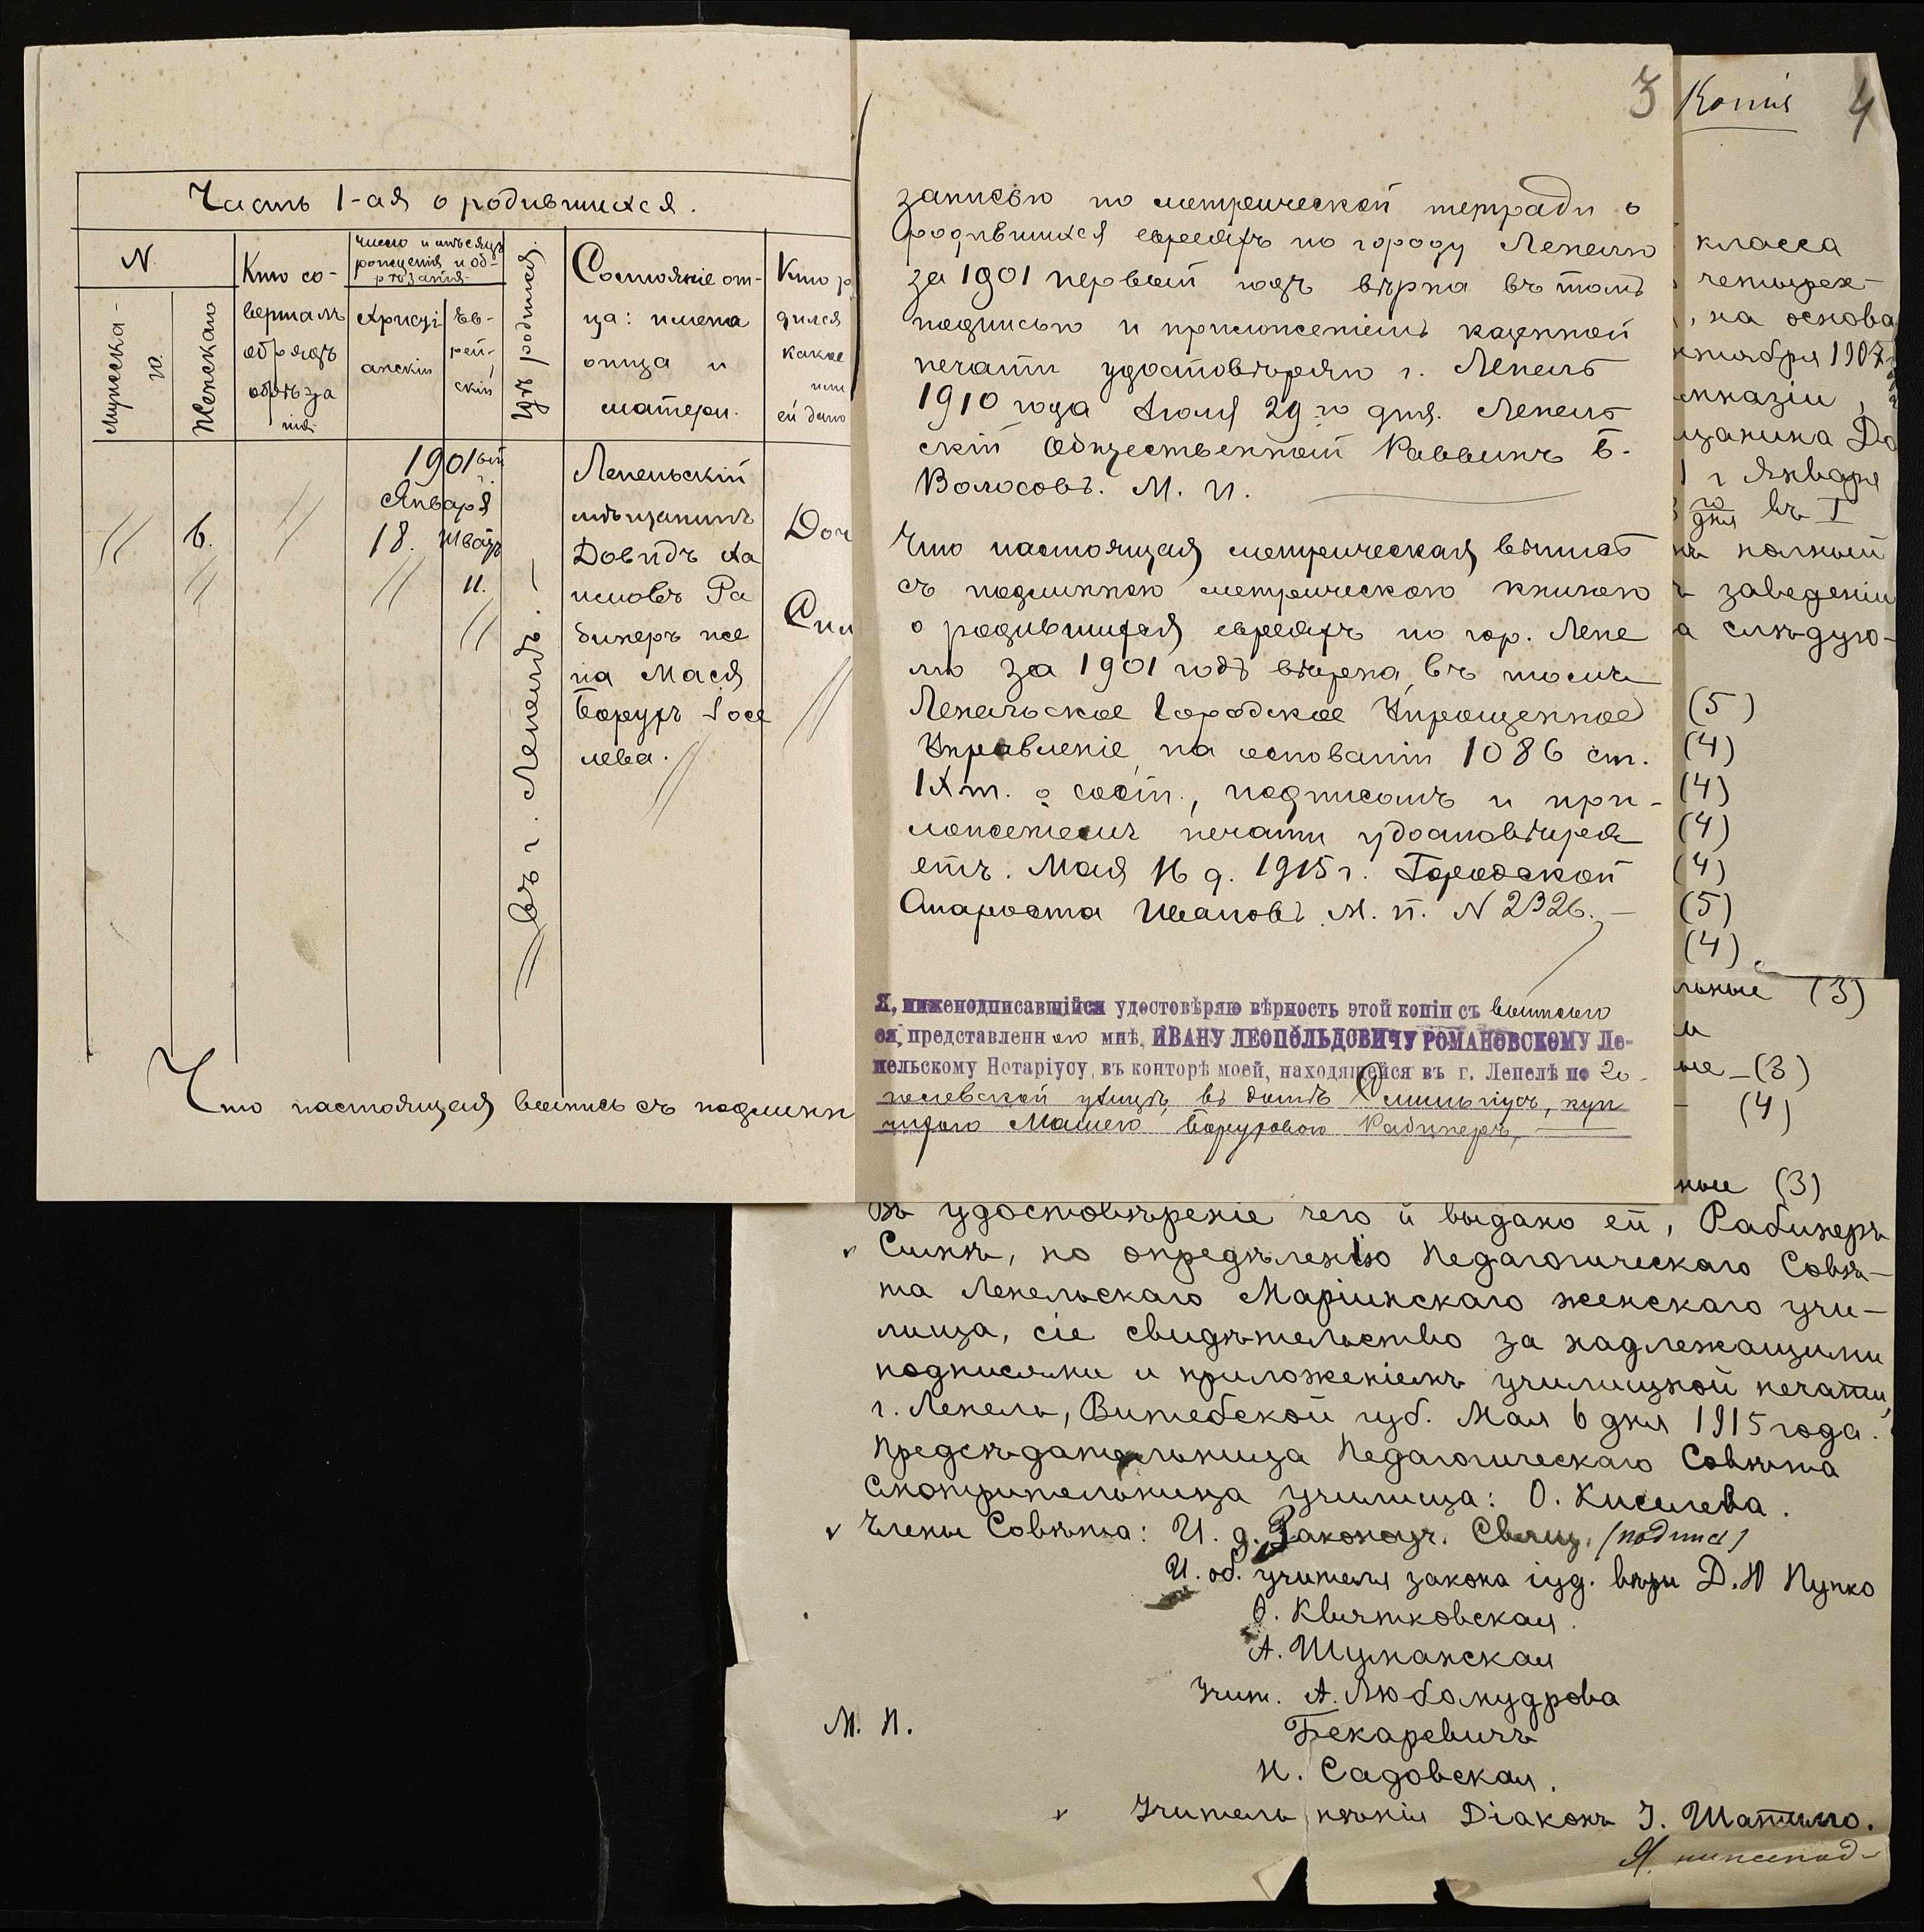 Часть 1-ая о родившихся.
N
Мужеска-
го.
Женскаго
Кто со-
вершалъ
обрядъ
обрѣза
нія
Число и мѣсяцъ
рожденія и об-
рѣзанія
Христі
анскій
Ев-
рей-
скій
Гдѣ родился.
Состояніе от-
ца: имена
отца и
матери.
Кто р
дился
какое
имя
ей дано
1901ый г.
Января
6.
18.
Шватъ
11.
въ г. Лепелѣ.
Лепельскій
мѣщанинъ
Довидъ Ха
имовъ Ра
бинеръ же
на Мася
Борухъ Іосе
лева.
Доч
Сим
Что настоящая выпись съ подлинн
3
записью по метрической тетради о
родившихся евреяхъ по городу Лепелю
за 1901 первый годъ вѣрна въ томъ
подписью и приложеніемъ казенной
печати удостовѣряю г. Лепель
1910 года Іюля 29 го дня. Лепель
скій Общественный Раввинъ Б.
Волосовъ. М. П.
Что настоящая метрическая выпись
съ подлинною метрическою книгою
о родившихся евреяхъ по гор. Лепе
лю за 1901 годъ вѣрна, въ томъ
Лепельское Городское Упрощенное
Управленіе на основаніи 1086 ст.
IX т. о сост., подписомъ и при-
ложеніемъ печати удостовѣря
етъ. Мая 16 д. 1915 г. Городской
Староста Ивановъ. М. п. N 2326.
Я, нижеподписавшійся удостовѣряю вѣрность этой копіи съ выписью
ея, представленн ою мнѣ, ИВАНУ ЛЕОПОЛЬДОВИЧУ РОМАНОВСКОМУ Ле-
пельскому Нотаріусу, въ конторѣ моей, находящейся въ г. Лепелѣ по Го-
голевской улицѣ, въ домѣ
Боруховою Рабинеръ,
Копія
4
класса
четырех-
, на основа
ктября 1907
мназіи,
щанина Да
1 г Января
го дня въ I
полный
заведеніи
а слѣдую-
(5)
(4)
(4)
(4)
(4)
(5)
(4).
льные (3)
ые - (3)
(4)
ные (3)
Въ удостовѣреніе чего и выдано ей, Рабинеръ
Симѣ, по опредѣленію Педагогическаго Совѣ-
та Лепельскаго Маріинскаго женскаго учи-
лища, сіе свидѣтельство за надлежащими
подписями и приложеніемъ училищной печати,
г. Лепель, Витебской губ. Мая 6 дня 1915 года.
Предсѣдательница Педагогическаго Совѣта
Смотрительница училища: О. Киселева.
Члены Совѣта: И. д. Законоуч. Свящ. (подпись)
И. об. учителя закона іуд. вѣры Д. И Пупко
О. Квятковская.
А. Шуманская
Учит. А. Любомудрова
Бекаревичъ
М. П.
Н. Садовская.
Учитель пѣнія Діаконъ І. Шатилло.
Я, нижепод-